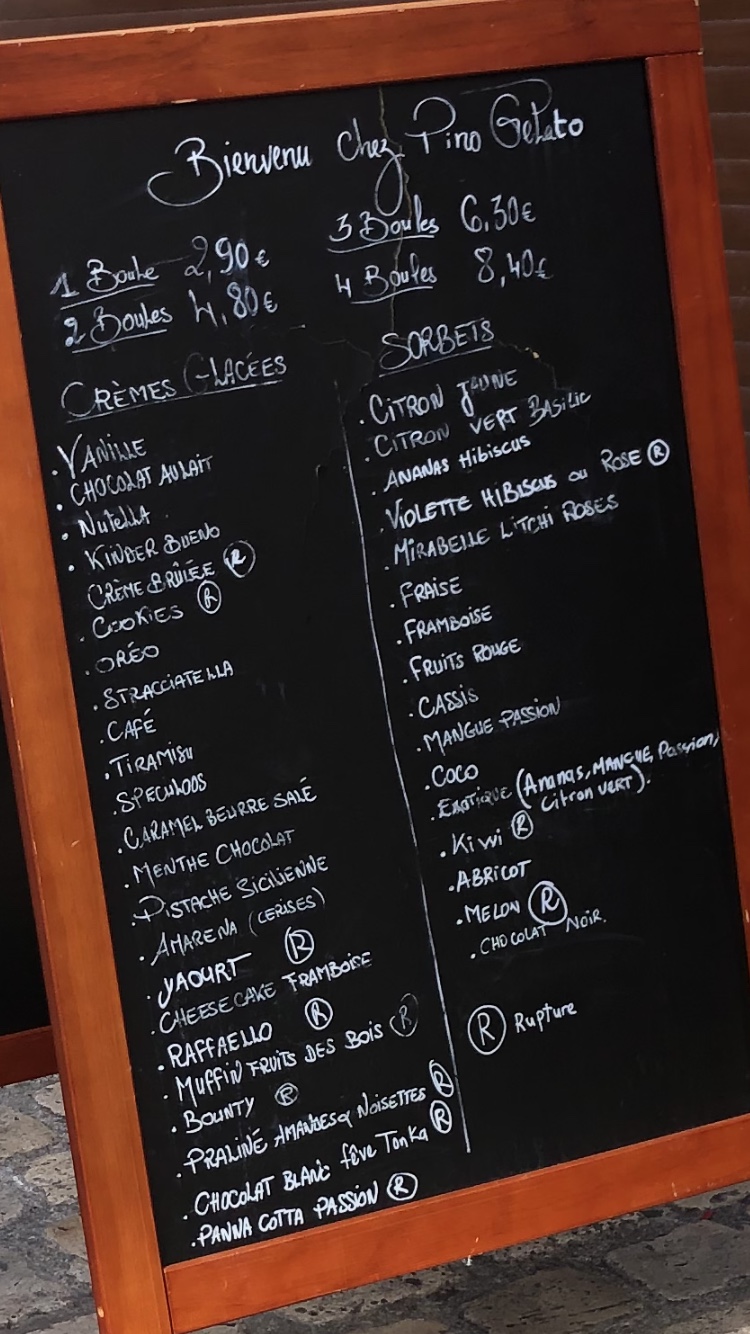 Bienvenu chez Pino Gelato
1 Boule 2,90€
2 Boules 4,80€
3 Boules 6,30€
4 Boules 8,40€
CRÈMES GLACÉES
. VANILLE
. CHOCOLAT AU LAIT
. NUTELLA
. KINDER BUENO
CRÈME BRÛLÉE Ⓡ
. COOKIES Ⓡ
. ORÉO
. STRACCIATELLA
. CAFÉ
. TIRAMISU
. SPECULOOS
. CARAMEL BEURRE SALÉ
. MENTHE CHOCOLAT
. PISTACHE SICILIENNE
. AMARENA (CERISES)
. YAOURT Ⓡ
. CHEESECAKE FRAMBOISE
. RAFFAELLO Ⓡ
. MUFFIN FRUITS DES BOIS Ⓡ
. BOUNTY Ⓡ
. PRALINÉ AMANDES & NOISETTES Ⓡ
. CHOCOLAT BLANC fève Tonka Ⓡ
. PANNA COTTA PASSION Ⓡ
SORBETS
. CITRON JAUNE
. CITRON VERT BASILIC
. ANANAS HIBISCUS
. VIOLETTE HIBISCUS ou ROSE Ⓡ
. MIRABELLE LITCHI ROSES
. FRAISE
. FRAMBOISE
. FRUITS ROUGE
. CASSIS
. MANGUE PASSION
. COCO
. EXOTIQUE (Ananas, MANGUE, Passion,
Citron VERT).
. Kiwi Ⓡ
. ABRICOT
. MELON Ⓡ
. CHOCOLAT NOIR.
Ⓡ Rupture